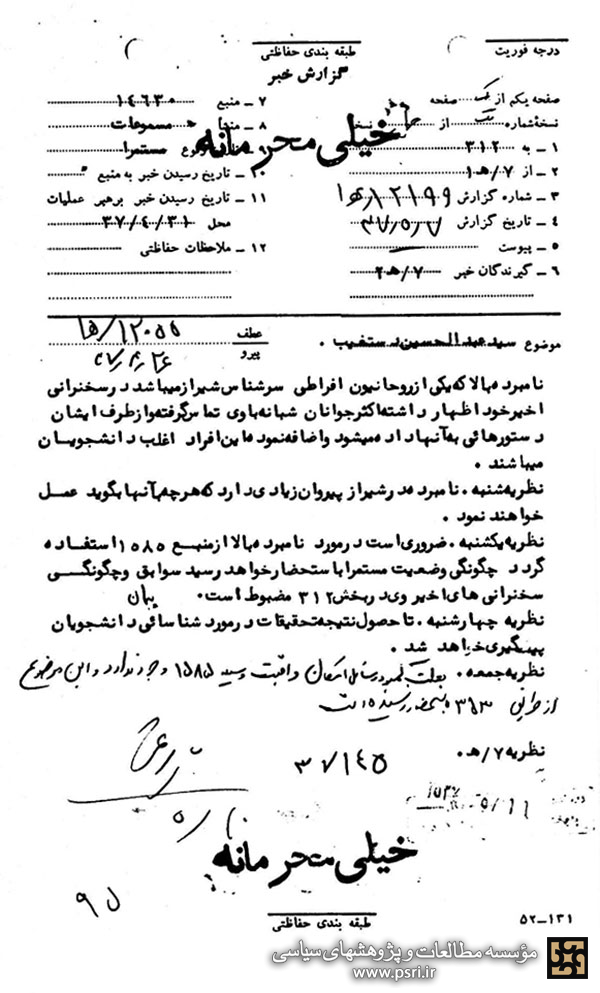 درجه فوریت
طبقه بندی حفاظتی
گزارش خبر
صفحه یکم از یک صفحه
نسخهٔ شماره از نسخه
۱ ـ به ۳۱۲
۲ ـ از ۷/ه۱
۳ ـ شماره گزارش ۱۲۱۹۹/ه۱
۴ ـ تاریخ گزارش ۳۷/۵/۷
۵ ـ پیوست
۶ ـ گیرندگان خبر ۷/ه۲
۷ ـ منبع ۱۴۶۳۰
۸ ـ منشأ مسموعات
وقوع مستمرا
۱۰ ـ تاریخ رسیدن خبر به منبع
۱۱ ـ تاریخ رسیدن خبر برهبر عملیات
محل ۳۷/۴/۳۱
۱۲ ـ ملاحظات حفاظتی
خیلی محرمانه
موضوع سید عبدالحسین دستغیب .
عطف
پیرو
۱۲۰۵۵/ه۱
نامبرده بالا که یکی از روحانیون افراطی سرشناس شیراز میباشد در سخنرانی
اخیر خود اظهار داشته اکثر جوانان شبانه با وی تماس گرفته و از طرف ایشان
دستورهائی به آنها داده میشود و اضافه نموده این افراد اغلب دانشجویان
میباشند .
نظریه شنبه . نامبرده در شیراز پیروان زیادی دارد که هر چه بآنها بگوید عمل
خواهند نمود .
نظریه یکشنبه . ضروری است در مورد نامبرده بالا از منبع ۱۵۸۵ استفاده
گردد چگونگی وضعیت مستمرا باستحضار خواهد رسید سوابق و چگونگی
سخنرانی های اخیر وی در بخش ۳۱۲ مضبوط است. بیان
نظریه چهارشنبه . تا حصول نتیجه تحقیقات در مورد شناسائی دانشجویان
پیگیری خواهد شد .
نظریه جمعه . بعلت کمبود وسائل امکان مراقبت وسیله ۱۵۸۵ وجود ندارد و این موضوع
از طرفی ۳۵۳ باستحضار رسیده است
نظریه ۷/ه .
۳۷۱۴۵
خیلی محرمانه
۹۵
طبقه بندی حفاظتی
۵۲ـ۱۳۱
مؤسسه مطالعات و پژوهشهای سیاسی
www.psri.ir